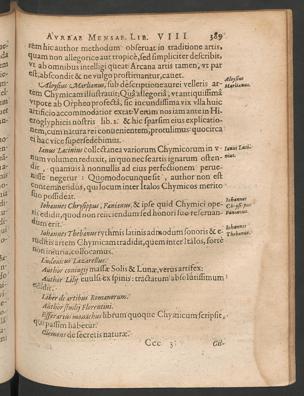 AVREAE MENSAE. LIB. VIII 389
rem hic author methodum obseruat in traditione artis,
quam non allegorice aut tropicè, sed simpliciter describit,
vt ab omnibus intelligi queat: Arcana artis tamen, vt par
est abscondit & ne vulgo prostituantur, cauet.
Aloysius Marlianus, sub descriptione aurei velleris ar-
Aloysius
Marlianus.
tem Chymicam illustrauit: Quæ allegoria, vt antiquissima
vtpote ab Orpheo profectà, sic iucundissima vix vlla huic
artificio accommodatior extat: Verum nos iam ante in Hi-
eroglyphicis nostris lib. 1. & hic sparsim eius explicatio-
nem, cum natura rei conuenientem, protulimus: quocirca
ei hac vice supersedebimus.
Ianus Lacinius collectanea variorum Chymicorum in v-
Ianus Laci-
nius.
num volumen reduxit, in quo nec se artis ignarum osten-
dit, quamuis à nonnullis ad eius perfectionem peruе-
nisse negetur: Quomodocunque sit, author non est
contemnendus, qui locum inter Italos Chymicos merito
suo possideat.
Iohannes Chrysippus, Fanianus, & ipse quid Chymici ope-
Iohannes
Chrysippus
Fanianus.
ris edidit, quod non reiiciendum sed honori suo referuan-
dum erit.
Iohannes Thebanus rythmis latinis admodum sonoris & e-
Iohannes
Thebanus.
ruditis artem Chymicam tradidit, quem inter Italos, fortè
non iniuria, collocamus.
Ludouicus Lazarellus.
Author coniugij massæ Solis & Lunæ, verus artifex.
Author Lilij euulsi è spinis: tractatum absolutissimum
edidit.
Liber de artibus Romanorum.
Author studij Florentini.
Efferarius monachus librum quoque Chymicum scripsit,
qui passim habetur.
Clemens de secretis naturæ.
Ccc 3